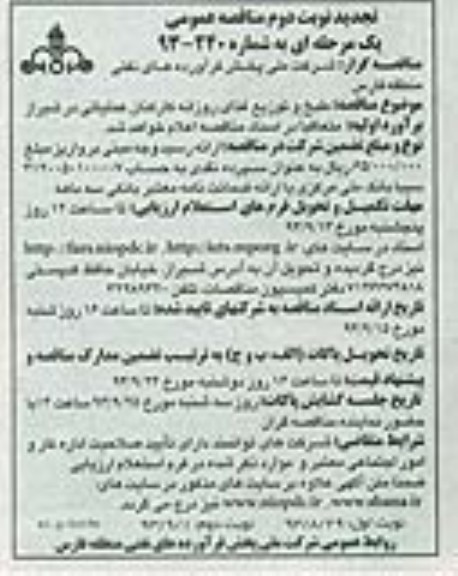 تجدید نوبت دوم مناقصه عمومی
یک مرحله ای به شماره ۲۴۰-۹۳
مناقصه گزار: شرکت ملی پخش فرآورده های نفتی
منطقه فارس
موضوع مناقصه: طبخ و توزیع غذای روزانه کارکنان عملیاتی در شیراز
برآورد اولیه: متعاقبا در اسناد مناقصه اعلام خواهد شد
نوع و مبلغ تضمین شرکت در مناقصه: ارائه رسید وجه مبنی بر واریز مبلغ
ریال به عنوان سپرده نقدی به حساب
سیبا بانک ملی مرکزی یا ارائه ضمانت نامه معتبر بانکی سه ماهه
مهلت تکمیل و تحویل فرم های استعلام ارزیابی: تا ساعت ۱۴ روز
پنجشنبه مورخ ۹۳/۹/۱۳
اسناد در سایت های http://iets.mporg.ir , http://fars.niopdc.ir
نیز درج گردیده و تحویل آن به آدرس شیراز، خیابان حافظ
دفتر کمیسیون مناقصات، تلفن
تاریخ ارائه اسناد مناقصه به شرکتهای تایید شده: تا ساعت ۱۴ روز شنبه
مورخ ۹۳/۹/۱۵
تاریخ تحویل پاکات (الف، ب و ج) به ترتیب تضمین مدارک مناقصه و
پیشنهاد قیمت: تا ساعت ۱۴ روز دوشنبه مورخ ۹۳/۹/۲۴
تاریخ جلسه گشایش پاکات: روز سه شنبه مورخ ۹۳/۹/۲۵ ساعت ۱۴ با
حضور نماینده مناقصه گران
شرایط متقاضی: شرکت های توانمند دارای تأیید صلاحیت اداره کار و
امور اجتماعی معتبر و موارد ذکر شده در فرم استعلام ارزیابی
ضمنا متن آگهی علاوه بر سایت های مذکور در سایت های:
www.shana.ir , www.niopdc.ir نیز درج می گردد.
نوبت اول: ۹۳/۸/۲۹ نوبت دوم: ۹۳/۹/۱
روابط عمومی شرکت ملی پخش فرآورده های نفتی منطقه فارس